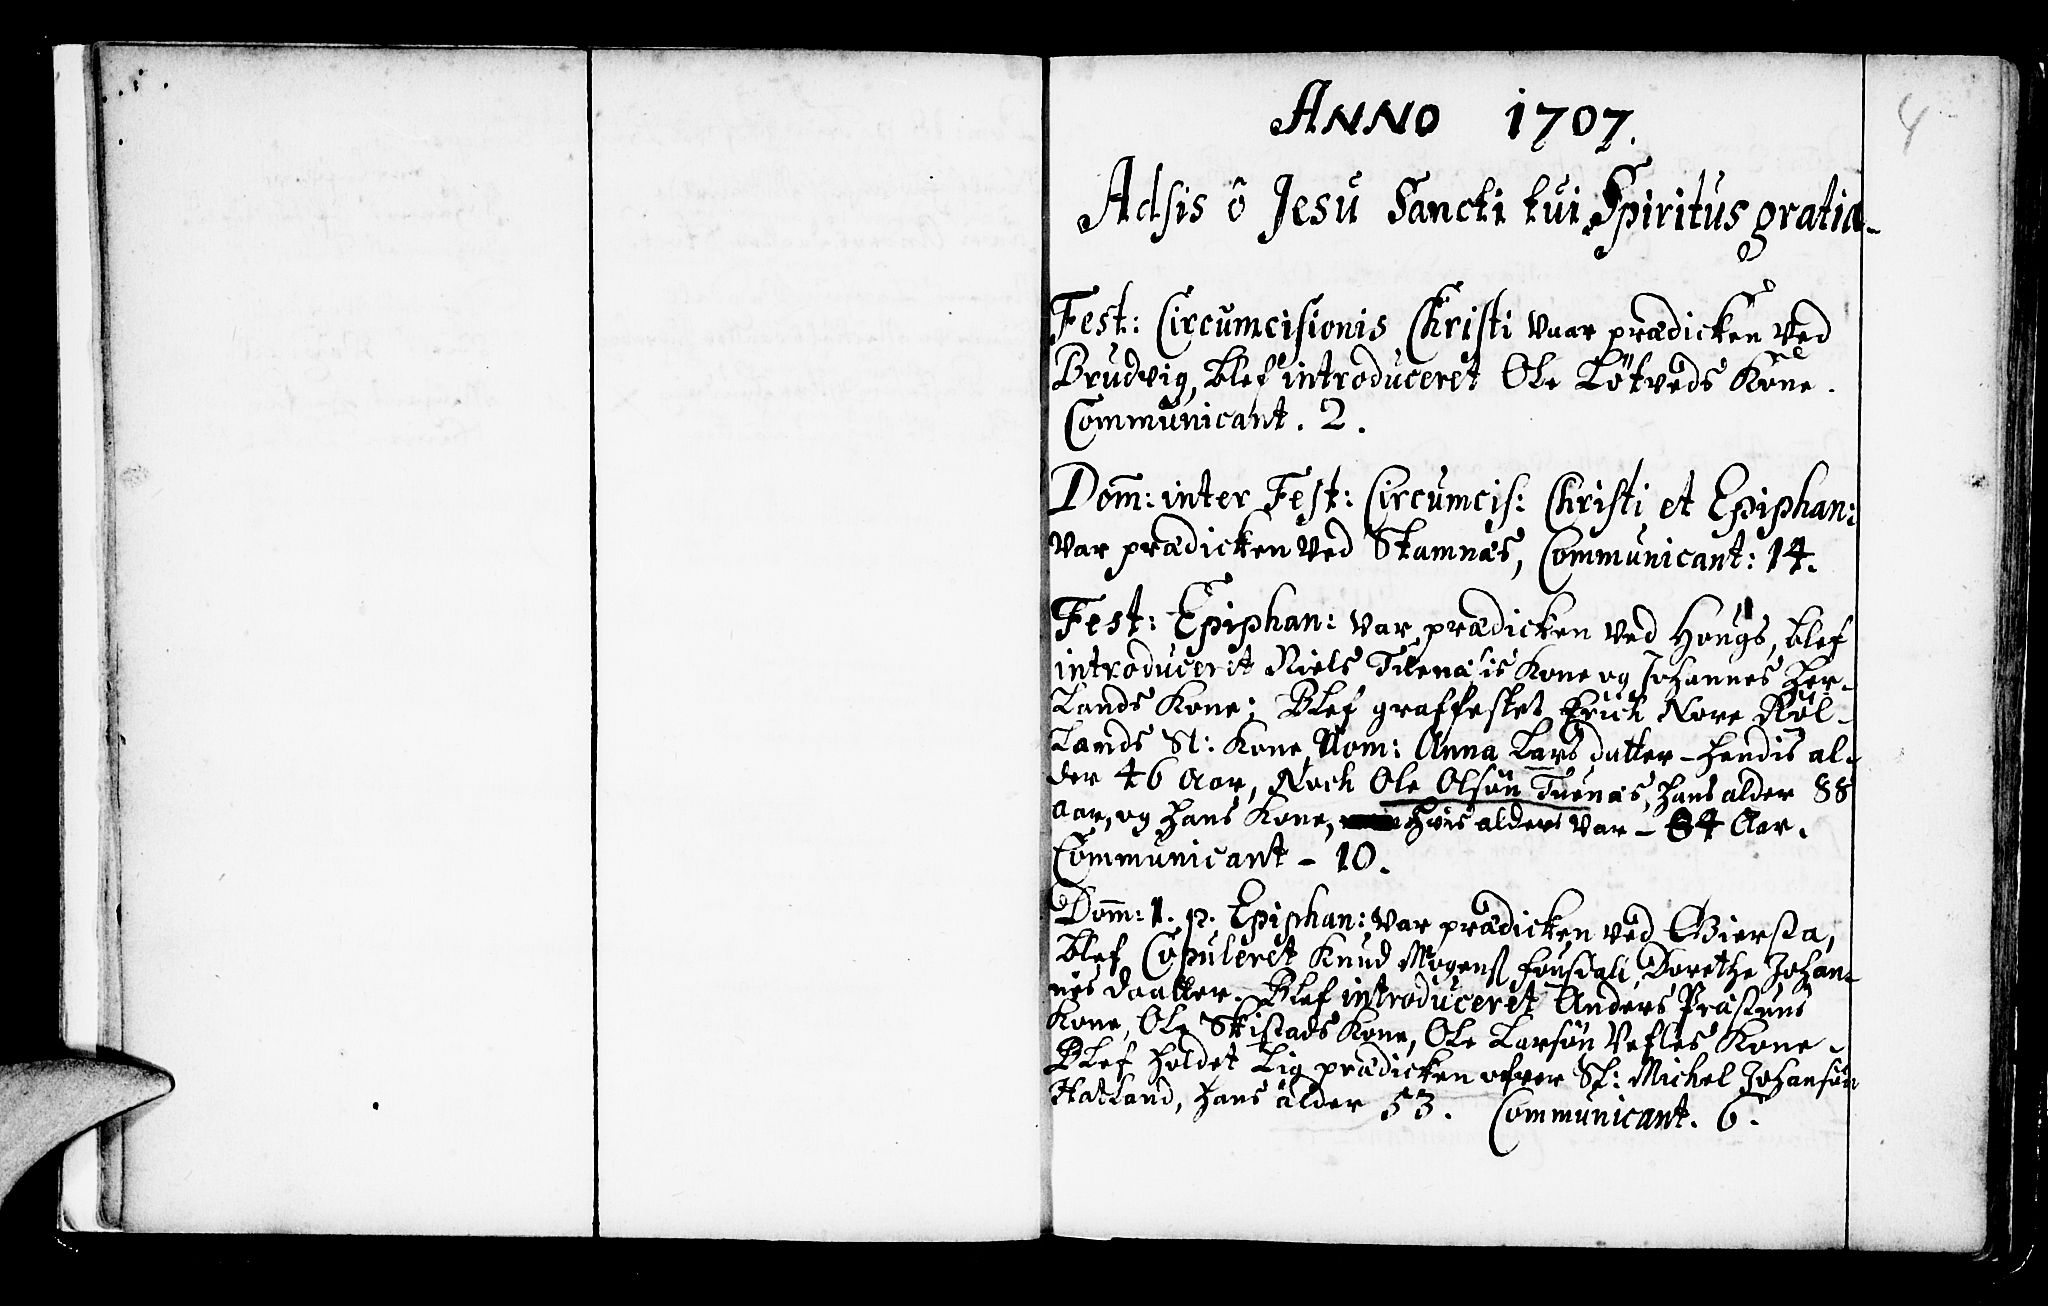 ANNO 1707.
4
Adsis ô Jesu Sancti tui Spiritus gratia
Fest: Circumcisionis Christi vaar prædicken ved
Brudvig, blef introduceret Ole Løtveds Kone.
Communicant. 2.
Dom̄: inter Fest: Circumcis: Christi et Epiphan:
var prædicken ved Stamnæs, Communicant: 14.
Fest: Epiphan: var prædicken ved Hougs, blef
introducerit Niels Kone og Johannes Her-
lands Kone; Blef graffestet Erich Nore
lands Sl: Kone Nom: Anna Lars datter - hendis al-
der 46 Aar, Noch Ole Olsøn Tuenæs, hans alder 88
aar, og hans Kone, hvis alder var - 84 Aar.
Communicant - 10.
Dom̄: 1. p. Epiphan: var prædicken ved Giersta,
blef Copuleret Knud Mogens Dorethe Johan-
nis daatter. Blef introduceret Anders
Kone, Ole Skistads Kone, Ole Larsøn Vefles Kone.
Blef holdet Lig prædicken ofver Sl: Michel Johansøn
Hatland, hans alder 53. Communicant. 6.